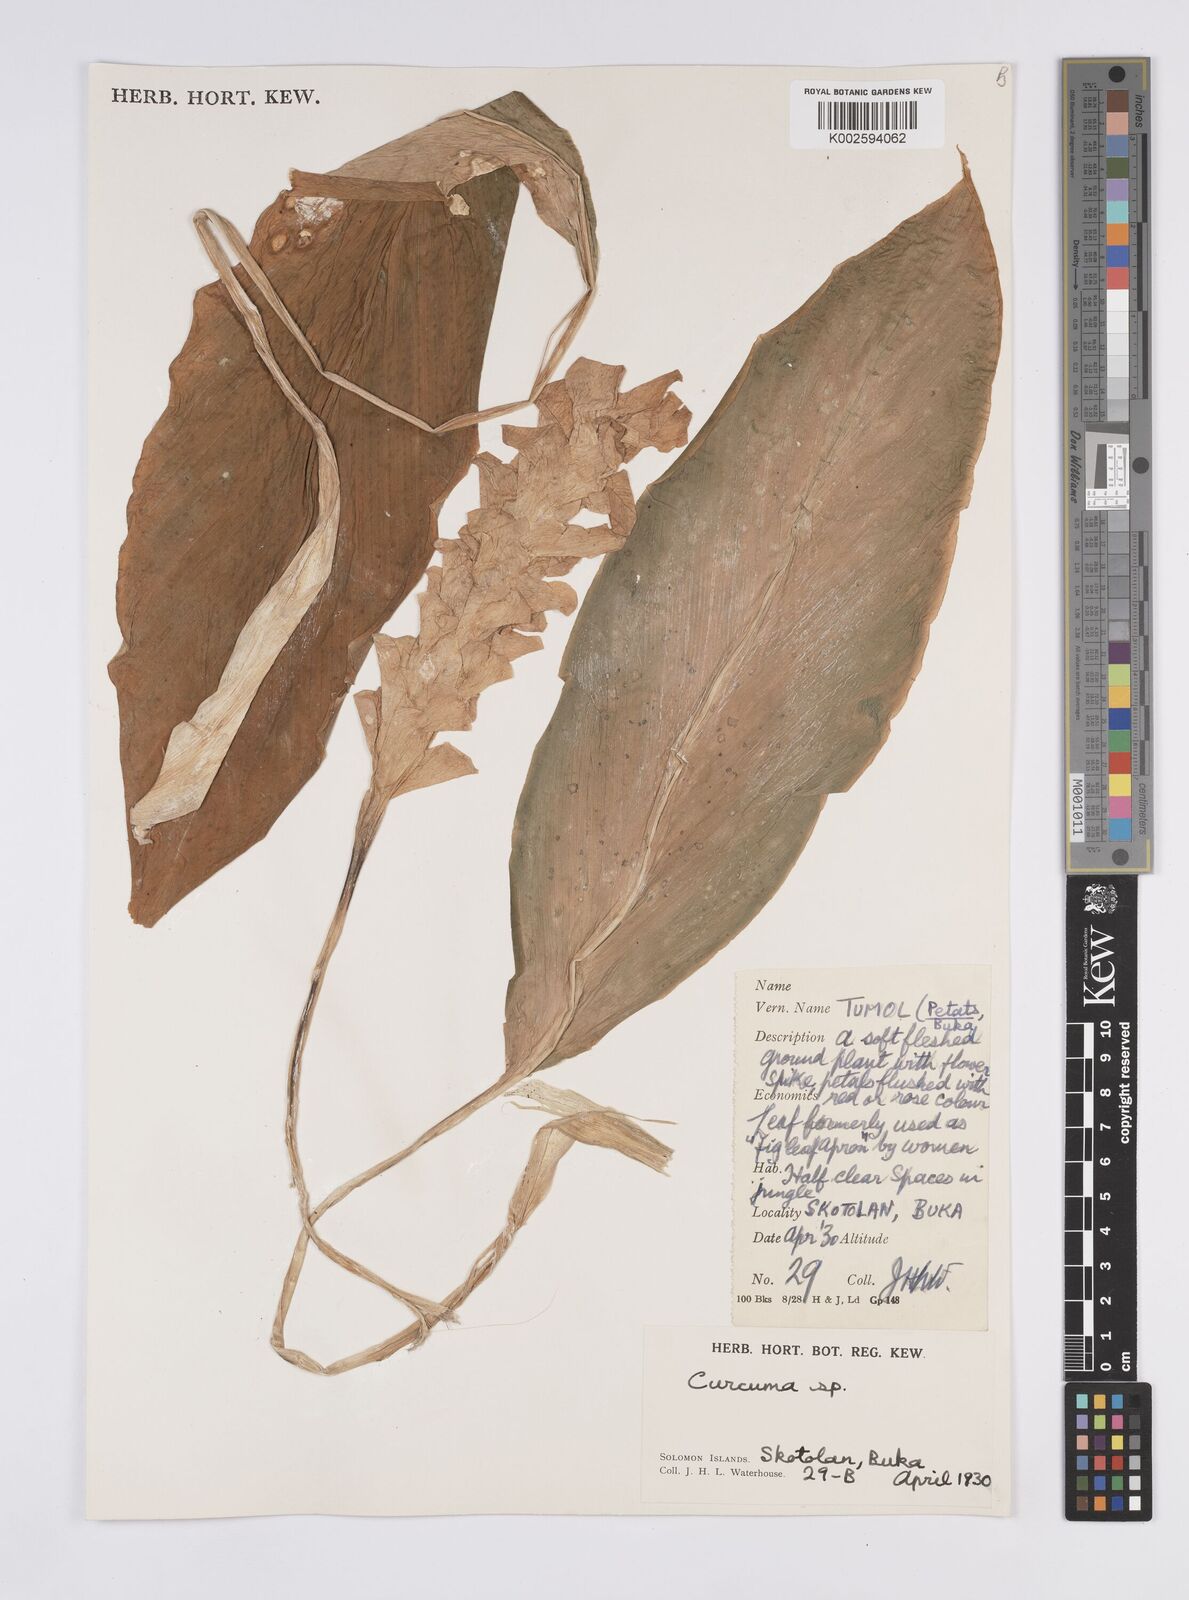 HERB. HORT. KEW.
B
ROYAL BOTANIC GARDENS KEW
K002594062
Name
Vern. Name TUMOL (Petats,
Buka
Description a soft fleshed
ground plant with flower
spike, petals flushed with
Economics red or rose colour
Leaf formerly used as
"fig leaf apron" by women
Hab. Half clear spaces in
jungle
Locality SKOTOLAN, BUKA
Date Apr '30 Altitude
No. 29 Coll. JHLW.
100 Bks 8/28 H & J, Ld Gp 148
HERB. HORT. BOT. REG. KEW.
Curcuma sp.
SOLOMON ISLANDS. Skotolan, Buka
Coll. J. H. L. Waterhouse. 29-B April 1930
inches
Density
Don Williams
centimeters
M001011
Royal Botanic Gardens
Kew
0 1 2 3 4 5 6 7 8 9 10
cm
copyright reserved